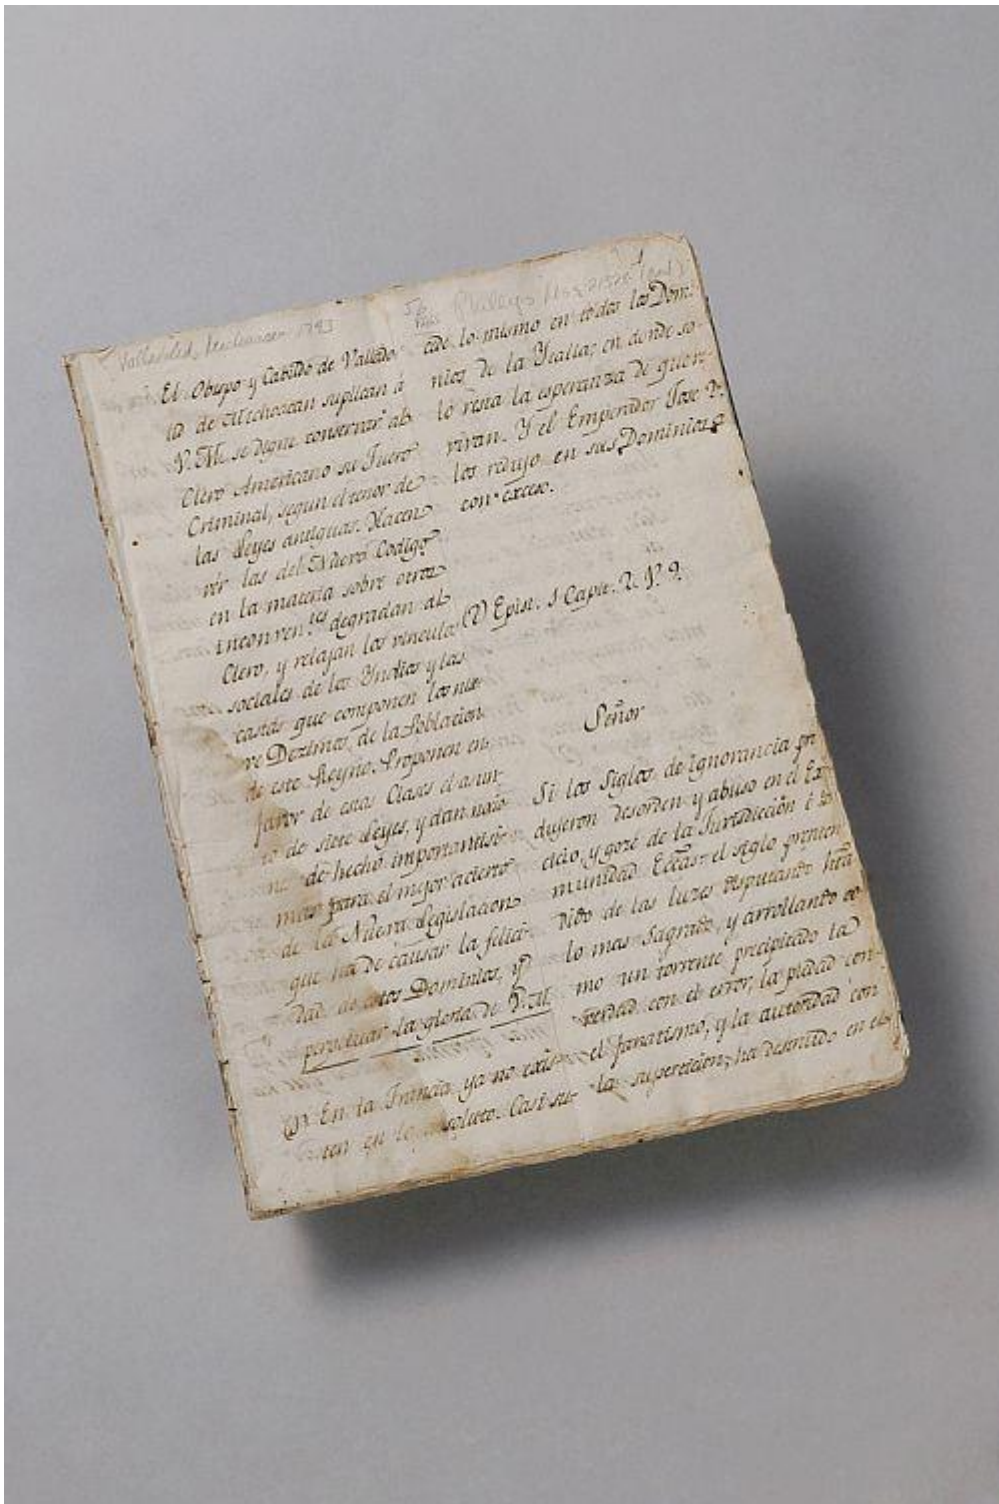 Valladolid, Michoacan 1793
56
Phillipps Mss 21322
El Obispo y Cabildo de Vallado-
lid de Michoacan suplican á
V. M. se digne conservar al
Clero Americano su Fuero
Criminal, segun el tenor de
las Leyes antiguas. Hacen
vér las del Nuevo Codigo
en la materia sobre otros
inconven.tes degradan al
Clero, y relajan los vinculos
sociales de los Yndios y las
castas que componen los nue-
ve Dezimos de la Poblacion
de este Reyno. Proponen en
favor de estas Clases el asun-
to de siete Leyes, y dan
de hecho importantisi-
mas para el mejor acierto
de la Nueva Legislacion
que ha de causar la felici-
dad de estos Dominios, y
perpetuar la gloria de V. M.
(1) En la Francia ya no exis-
ten en lo absoluto. Casi su-
cede lo mismo en todos los Domi-
nios de la Ytalia; en donde so-
lo resta la esperanza de que re-
vivan. Y el Emperador Jose 2.
los redujo en sus Dominios
con exceso.
(2) Epist. 1 Capit. 2. V. 9.
Señor
Si los Siglos de ignorancia pro
dujeron desorden y abuso en el Ex
cicio, y goze de la Jurisdiccion é
munidad Eccâs: el siglo preten
dido de las luzes disputando hta
lo mas Sagrado, y arrollando co
mo un torrente precipitado la
verdad con el error, la piedad con
el fanatismo, y la autoridad con
la supersticion, ha desmido en el